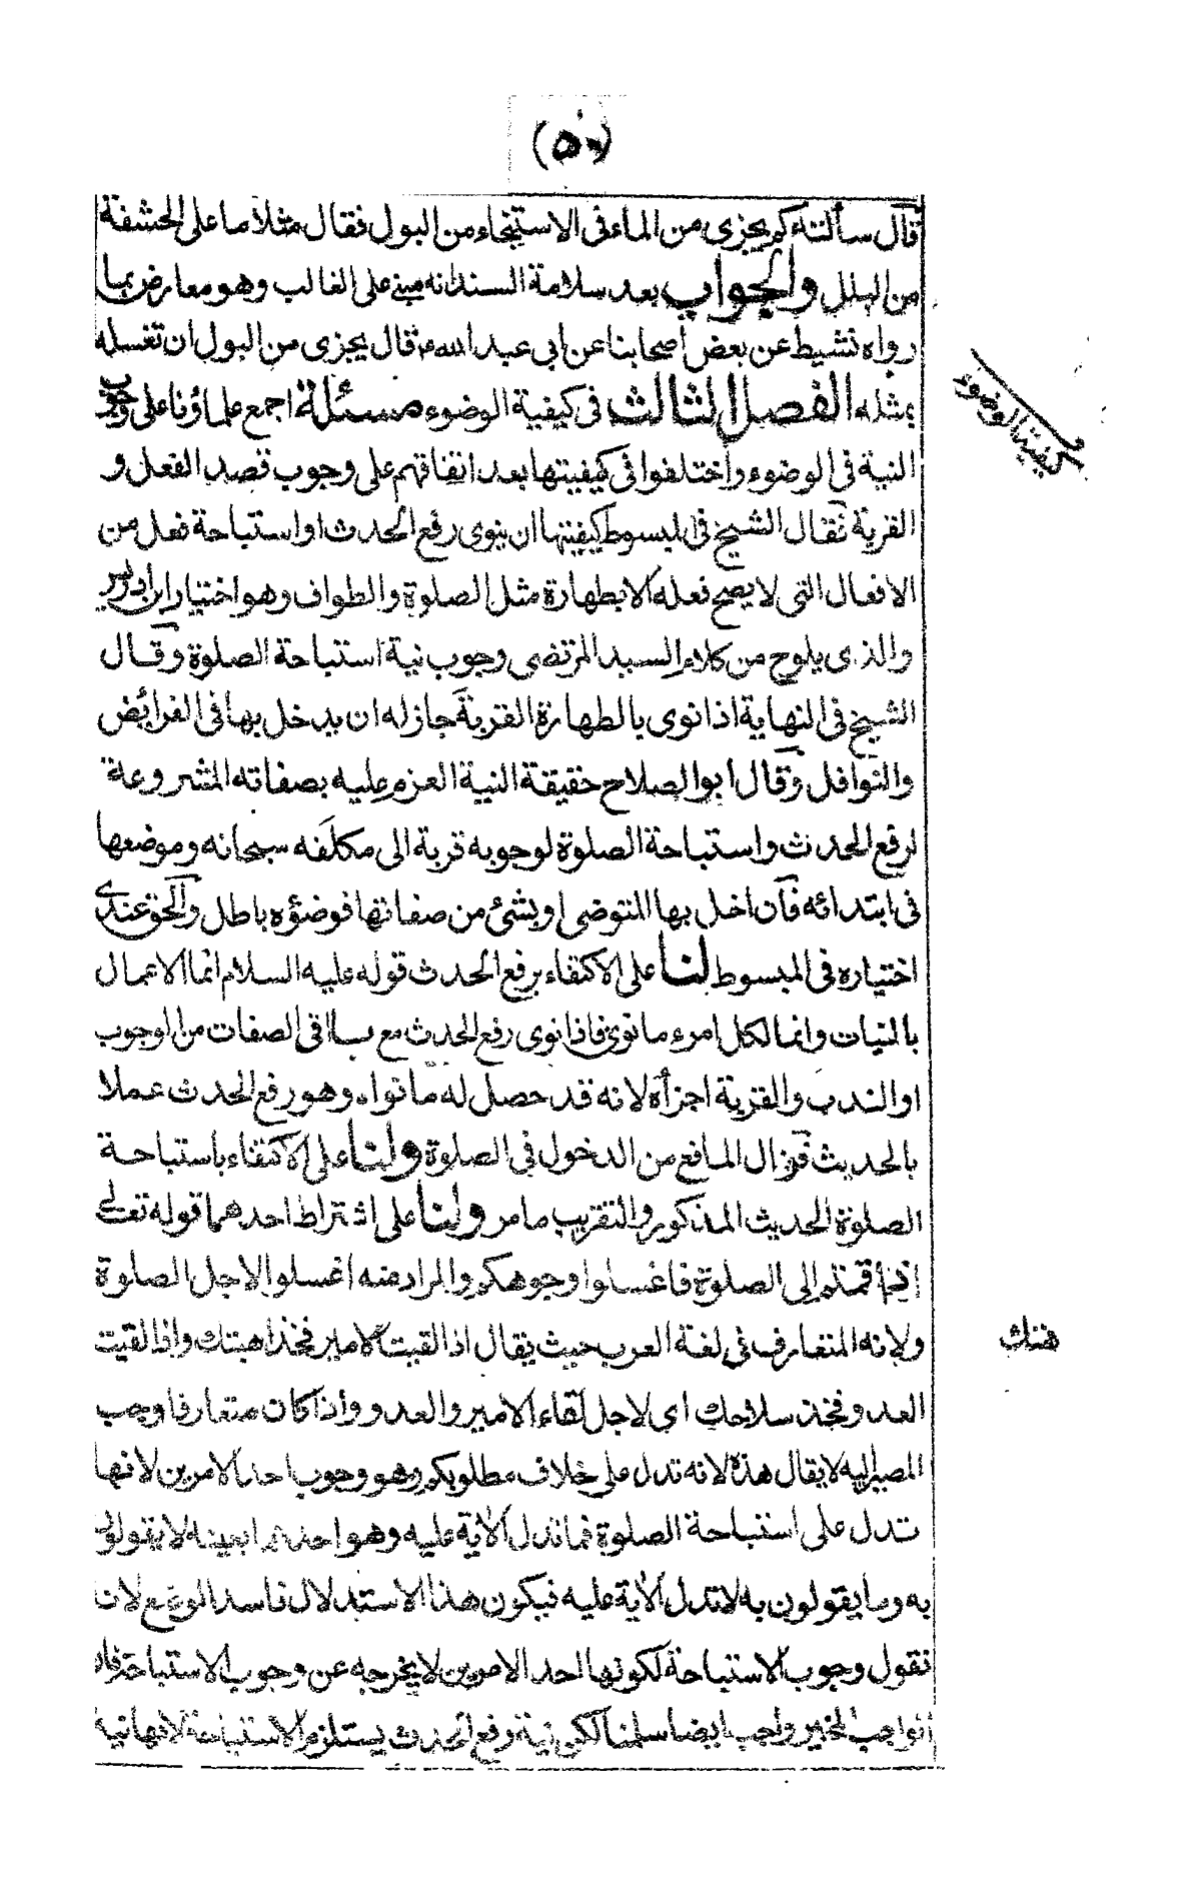 (٥٧)
قال سألته كم يجزى من الماء فى الاستنجاء من البول فقال مثلا ما على الحشفة
من البلل والجواب بعد سلامة السند انه مبنى على الغالب وهو معارض بما
رواه نشيط عن بعض اصحابنا عن ابى عبد الله ع قال يجزى من البول ان تغسله
بمثله الفصل الثالث فى كيفية الوضوء مسئلة اجمع علماؤنا على وجوب
كيفية الوضوء
النية فى الوضوء واختلفوا فى كيفيتها بعد اتفاقهم على وجوب قصد الفعل و
القربة فقال الشيخ فى المبسوط كيفيتها ان ينوى رفع الحدث او استباحة فعل من
الافعال التى لا يصح فعله الا بطهارة مثل الصلوة والطواف وهو اختيار ابن ادريس
والذى يلوح من كلام السيد المرتضى وجوب نية استباحة الصلوة وقال
الشيخ فى النهاية اذا نوى بالطهارة القربة جاز له ان يدخل بها فى الفرائض
والنوافل وقال ابو الصلاح حقيقة النية العزم عليه بصفاته المشروعة
لرفع الحدث واستباحة الصلوة لوجوبه قربة الى مكلفه سبحانه وموضعها
فى ابتدائه فان اخل بها المتوضى او بشئ من صفاتها فوضؤه باطل والحق عندى
اختياره فى المبسوط لنا على الاكتفاء برفع الحدث قوله عليه السلام انما الاعمال
بالنيات وانما لكل امرء ما نوى فاذا نوى رفع الحدث مع باقى الصفات من الوجوب
او الندب والقربة اجزأه لانه قد حصل له ما نواه وهو رفع الحدث عملا
بالحديث فزال المانع من الدخول فى الصلوة ولنا على الاكتفاء باستباحة
الصلوة الحديث المذكور والتقريب ما مر ولنا على اشتراط احدهما قوله تعالى
اذا قمتم الى الصلوة فاغسلوا وجوهكم والمراد منه اغسلوا لاجل الصلوة
ولانه المتعارف فى لغة العرب حيث يقال اذا لقيت الامير فخذ اهبتك واذا لقيت
العدو فخذ سلاحك اى لاجل لقاء الامير والعدو واذا كان متعارفا وجب
المصير اليه لا يقال هذه الاية تدل على خلاف مطلوبكم وهو وجوب احد الامرين لانها
تدل على استباحة الصلوة فما تدل الاية عليه وهو احدهما بعينه لا تقولون
به وما يقولون به لا تدل الاية عليه فيكون هذا الاستدلال فاسد الوضع لانا
نقول وجوب الاستباحة لكونها احد الامرين لا يخرجه عن وجوب الاستباحة فان
الواجب المخير واجب ايضا سلمنا لكن نية رفع الحدث يستلزم الاستباحة لانها نية